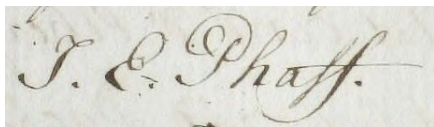 J. E. Phaff.